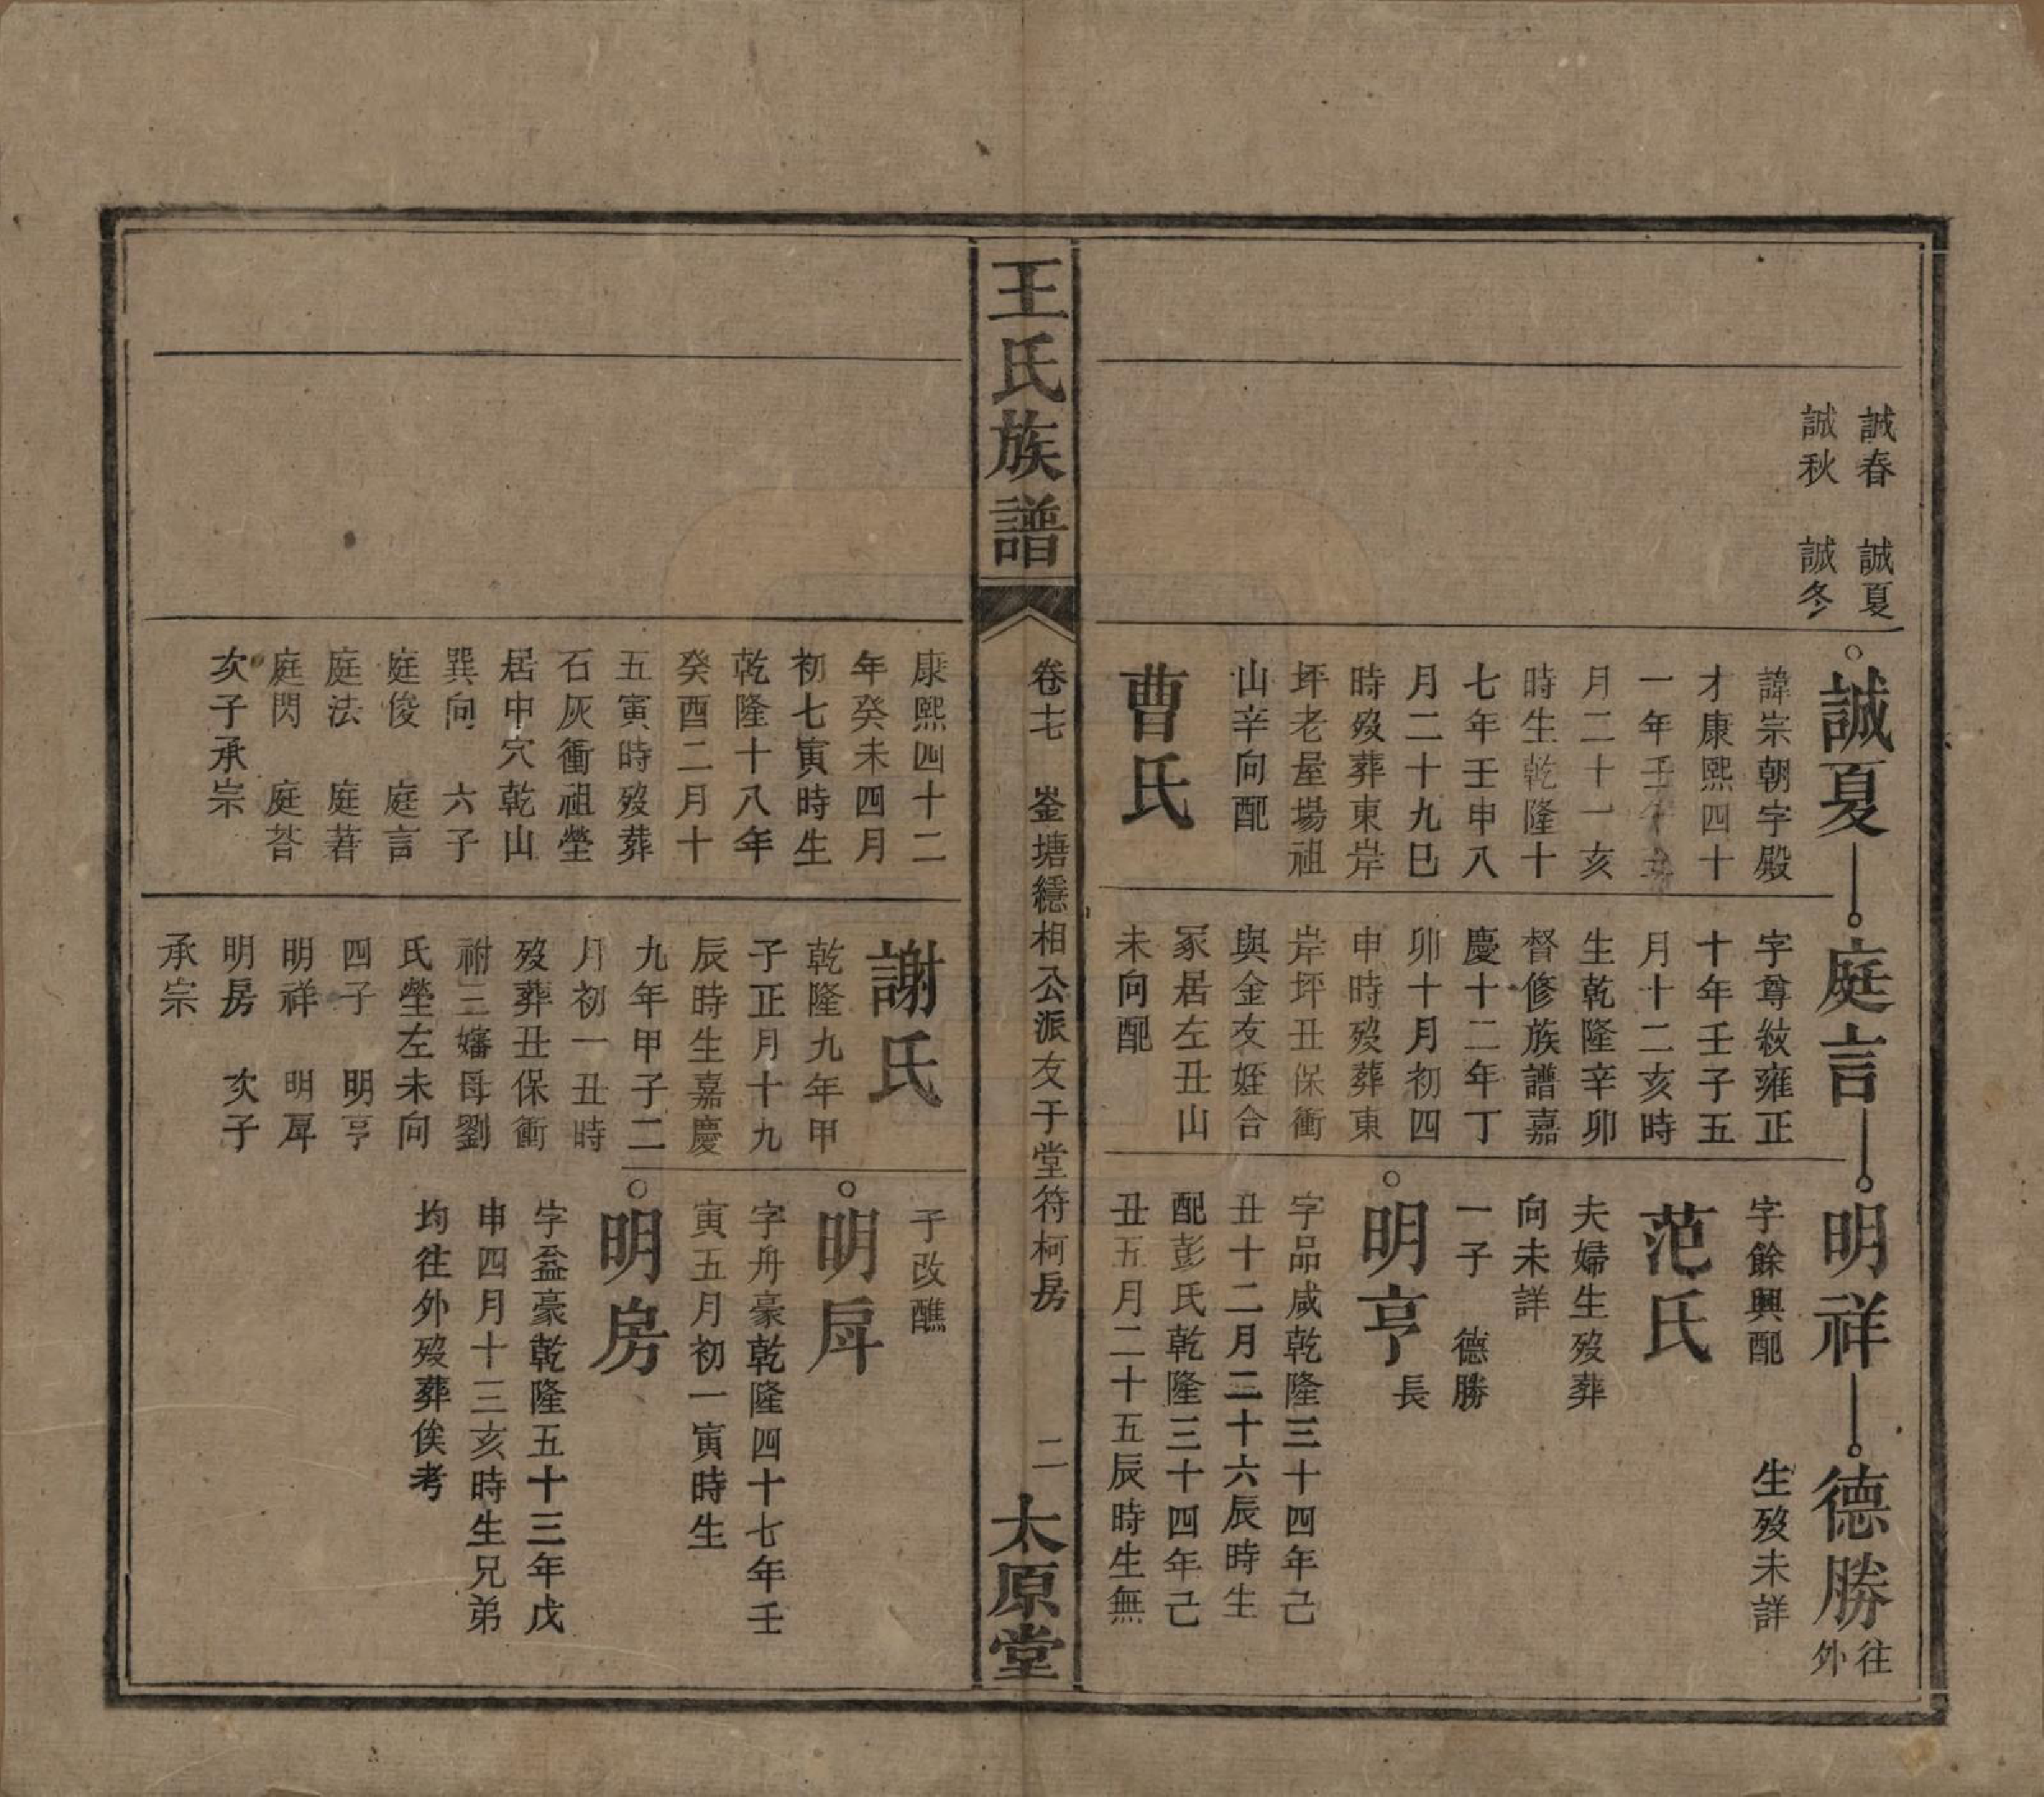 誠春　誠夏
誠秋　誠冬
誠夏
諱宗朝字殿
才康熙四十
一年壬午五
月二十一亥
時生乾隆十
七年壬申八
月二十九巳
時歿葬東岸
坪老屋場祖
山辛向配
曹氏
庭言
字尊紋雍正
十年壬子五
月十二亥時
生乾隆辛卯
督修族譜嘉
慶十二年丁
卯十月初四
申時歿葬東
岸坪丑保衝
與金友姪合
冢居左丑山
未向配
明祥
字餘興配
范氏
夫婦生歿葬
向未詳
一子　德勝
明亨
長
字品咸乾隆三十四年己
丑十二月二十六辰時生
配彭氏乾隆三十四年己
丑五月二十五辰時生無
德勝
往
外
生歿未詳
王氏族譜
卷十七　崟塘穩相公派友于堂符柯房
二
太原堂
康熙四十二
年癸未四月
初七寅時生
乾隆十八年
癸酉二月十
五寅時歿葬
石灰衝祖塋
居中穴乾山
巽向　六子
庭俊　庭言
庭法　庭著
庭閃　庭荅
次子承宗
謝氏
乾隆九年甲
子正月十九
辰時生嘉慶
九年甲子二
月初一丑時
歿葬丑保衝
祔三嬸母劉
氏塋左未向
四子　明亨
明祥　明戽
明房　次子
承宗
子改醮
明戽
字舟豪乾隆四十七年壬
寅五月初一寅時生
明房
字益豪乾隆五十三年戊
申四月十三亥時生兄弟
均往外歿葬俟考